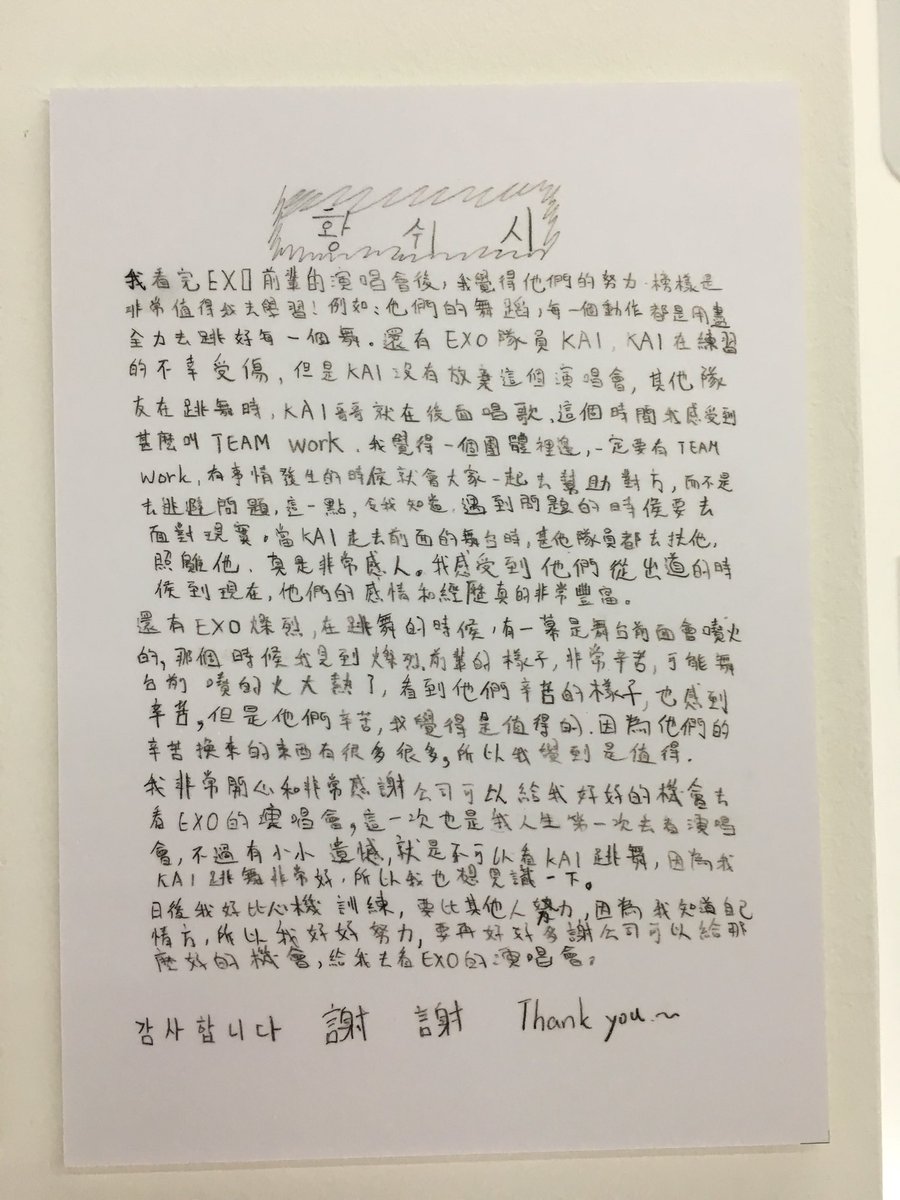 황 쉬 시
我看完EXO前輩的演唱會後，我覺得他們的努力、榜樣是
非常值得我去學習！例如：他們的舞蹈，每一個動作都是用盡
全力去跳好每一個舞。還有EXO隊員KAI、KAI在練習
的不幸受傷，但是KAI沒有放棄這個演唱會，其他隊
友在跳舞時，KAI哥哥就在後面唱歌、這個時間我感受到
甚麼叫TEAM work、我覺得一個團體裡邊，一定要有TEAM
work，有事情發生的時候就會大家一起去幫助對方，而不是
去逃避問題，這一點，令我知道，遇到問題的時侯要去
面對現實。當KAI走去前面的舞台時，其他隊員都去扶他，
照顧他、真是非常感人。我感受到他們從出道的時
侯到現在，他們的感情和經歷真的非常豐富。
還有EXO燦烈，在跳舞的時候，有一幕是舞台前面會噴火
的，那個時候我見到燦烈前輩的樣子，非常辛苦，可能舞
台前噴的火太熱了，看到他們辛苦的樣子，也感到
辛苦，但是他們辛苦，我覺得是值得的、因為他們的
辛苦換來的東西有很多很多，所以我覺到是值得．
我非常開心和非常感謝公司可以給我好好的機會去
看EXO的演唱會，這一次也是我人生第一次去看演唱
會，不過有小小遺憾，就是不可以看KAI跳舞，因為我
KAI跳舞非常好，所以我也想見識一下。
日後我好比心機訓練，要比其他人努力，因為我知道自己
情方，所以我好好努力，要再好好多謝公司可以給那
麼好的機會，給我去看EXO的演唱會；
감사합니다 謝 謝 Thank you.~